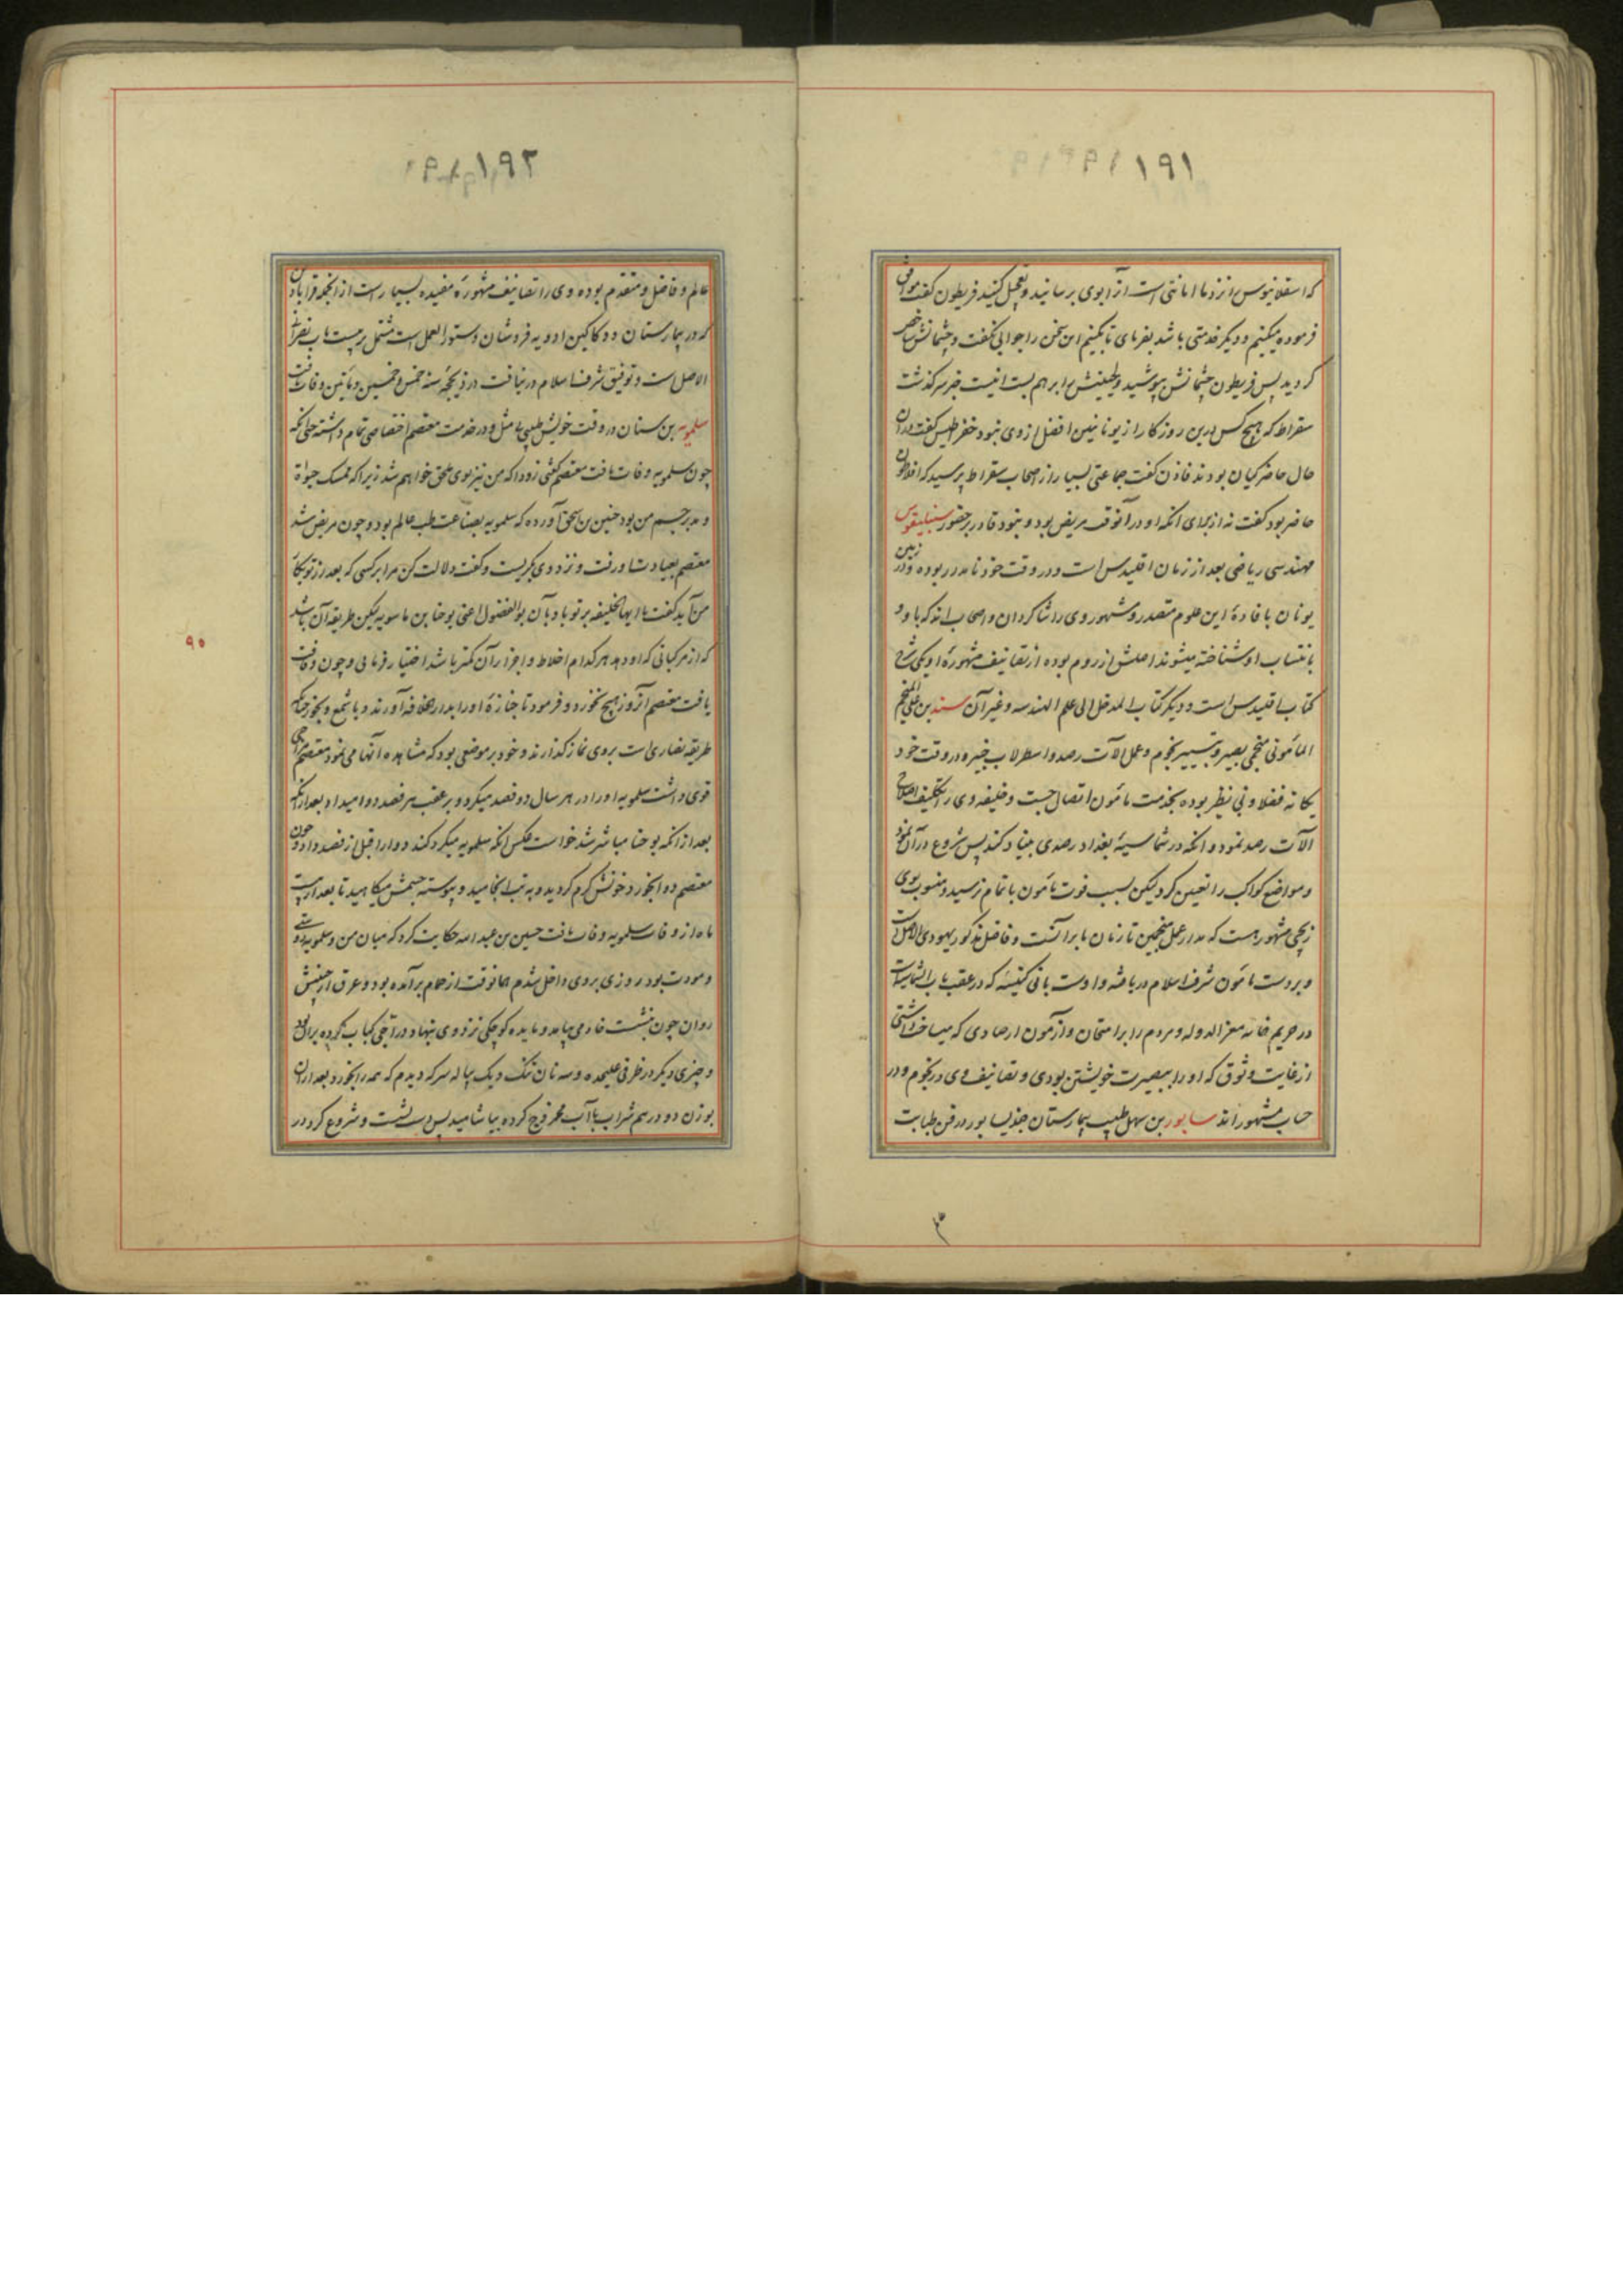 ۱۹۱
که اسقلانیوس را نزد ما امانتی است آنرا بوی برسانید و تعجیل کنید فریطون گفت موافق
فرموده میکنیم و دیگر خدمتی باشد بفرمای تا بکنیم این سخن را جوابی نگفت و چشمانش شاخص
گردید پس فریطون چشمانش بپوشید و لحیینش را برهم بست اینست خبر سرگذشت
سقراط که هیچ کس درین روزگار از یونانیین افضل از وی نبود گفت در آن
حال حاضر کیان بودند فاذن گفت جماعتی بسیار از اصحاب سقراط پرسید که افلاطون
حاضر بود گفت نه از برای آنکه او در آنوقت مریض بود و نبود قادر بر حضور سنبلیقوس
مهندسی ریاضی بعد از زمان اقلیدس است و در وقت خود نامدار بوده و در زمین
یونان بافادهٔ این علوم متصدر و مشهور وی را شاگردان و اصحاب اند که با و
بانتساب او شناخته میشوند اصلش از روم بوده از تصانیف مشهورهٔ او یکی شرح
کتاب اقلیدس است و دیگر کتاب المدخل الی علم الهندسه و غیر آن سند بن علی المنجم
المأمونی منجمی بصیر و بتسییر نجوم و عمل الآت رصد و اسطرلاب خبیر و در وقت خود
یگانه فضلا و بی نظیر بوده بخدمت مأمون اتصال جست و خلیفه وی را تکلیف اصلاح
الآت رصد نمود و آنکه در شماسیهٔ بغداد رصدی بنیاد کند پس شروع در آن نمود
و مواضع کواکب را تعیین کرد لیکن بسبب فوت مأمون باتمام نرسید و منسوب بوی
زیجی مشهور هست که مدار عمل منجمین تا زمان ما بر آنست و فاضل مذکور یهودی الاصل است
و بر دست مأمون شرف اسلام دریافته و اوست بانی کنیسه که در عقب باب الشماسیه است
در حریم خانه معز الدوله و مردم را برامتحان و آزمون ارصادی که میساخت داشتی
از غایت وثوق که او را ببصیرت خویشتن بودی و تصانیف وی در نجوم و در
حساب مشهور اند سابور بن سهل طبیب بیمارستان جندیسابور در فن طبابت
۱۹۲
عالم و فاضل و متقدم بوده وی را تصانیف مشهورهٔ مفیده بسیار است از انجمله قراباذین
که در بیمارستان و دکاکین ادویه فروشان دستور العمل است مشتمل بر بیست باب نصرانی
الاصل است و توفیق شرف اسلام در نیافت در ذیحجه سنه خمس و خمسین و مأتین وفات یافت
سلمویه بن سنان در وقت خویش طبیبی بی مثل و در خدمت معتصم اختصاص تمام داشته حتی آنکه
چون سلمویه وفات یافت معتصم گفتی زودا که من نیز بوی ملحق خواهم شد زیرا که ممسک حیوة
و مدبر جسم من بود حنین بن اسحق آورده که سلمویه بصناعت طب عالم بود و چون مریض شد
معتصم بعیادت او رفت و نزد وی بگریست و گفت دلالت کن مرا بر کسی که بعد از تو بکار
من آید گفت ایها الخلیفه بر تو باد بآن بوالفضول اعنی یوحنا بن ماسویه لیکن طریقه آن باشد
که از مرکباتی که او دهد هر کدام اخلاط و اجزاء آن کمتر باشد اختیار فرمائی و چون وفات
یافت معتصم آنروز هیچ نخورد و فرمود تا جنازهٔ او را بدار خلافه آوردند و با شمع و بخور چنانکه
طریقه نصاری است بروی نماز گذارند و خود بر موضعی بود که مشاهده آنها می نمود معتصم
قوی داشت سلمویه او را در هر سال دو فصد میکرد و بر عقب هر فصد دوا میداد بعد از آنکه
بعد از آنکه یوحنا مباشر شد خواست عکس آنکه سلمویه میکرد کند دوا را قبل از فصد داد چون
معتصم دوا بخورد خونش گرم گردید و به تب انجامید و پیوسته جسمش میکاهید تا بعد از بیست
ماه از وفات سلمویه وفات یافت حسین بن عبد الله حکایت کرد که میان من و سلمویه دوستی
و مودت بود روزی بر وی داخل شدم همانوقت از حمام برآمده بود و عرق از جبینش
روان چون بنشست خادمی بیامد و مایده کوچکی نزد وی بنهاد دراجی کباب کرده بر آن بود
و چیزی دیگر در ظرفی علیحده و سه نان تنک و یک پیاله سرکه دیدم که همه را بخورد و بعد از آن
بوزن دو درهم شراب با آب ممزوج کرده بیاشامید پس دست بشست و شروع کرد در
۹۰